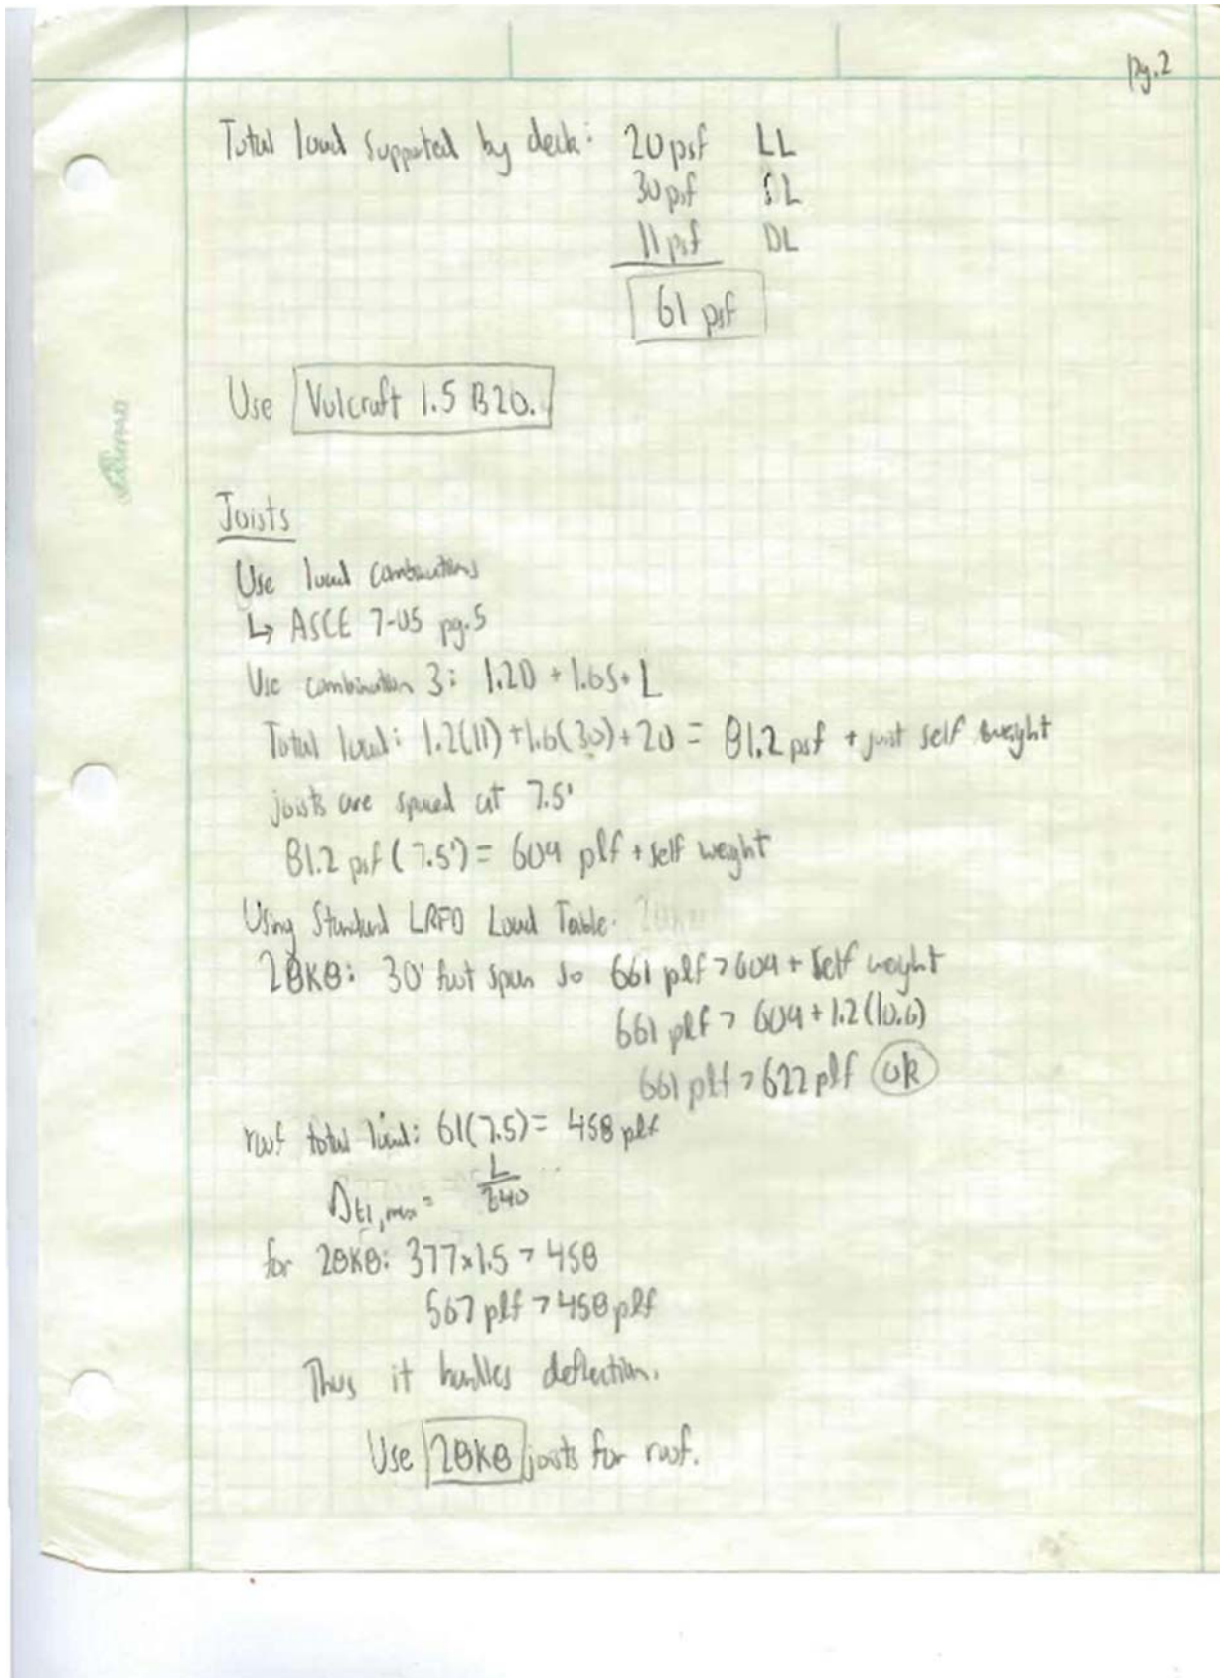 pg.2
Total load supported by deck: 20 psf LL
30 psf SL
11 psf DL
61 psf
Use Vulcraft 1.5 B20.
Joists
Use load combinations
↳ ASCE 7-05 pg.5
Use combination 3: 1.2D + 1.6S + L
Total load: 1.2(11) + 1.6(30) + 20 = 81.2 psf + joist self weight
joists are spaced at 7.5'
81.2 psf (7.5') = 609 plf + self weight
Using Standard LRFD Load Table:
28K8: 30' foot span so 661 plf > 609 + self weight
661 plf > 609 + 1.2(10.6)
661 plf > 622 plf ok
roof total load: 61(7.5) = 458 plf
Δtl,max = L/240
for 28K8: 377×1.5 > 458
567 plf > 458 plf
Thus it handles deflection.
Use 28K8 joists for roof.